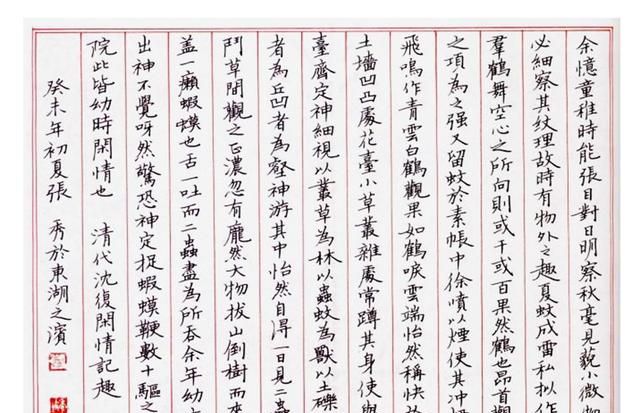 余憶童稚時能張目對日明察秋毫見藐小微
必細察其紋理故時有物外之趣夏蚊成雷私拟作
羣鶴舞空心之所向則或千或百果然鶴也昂首觀
之項為之强又留蚊於素帳中徐噴以煙使其冲
飛鳴作青雲白鶴觀果如鶴唳雲端怡然稱快於
土墻凹凸處花臺小草叢雜處常蹲其身使與
臺齊定神細視以叢草為林以蟲蚊為獸以土礫
者為丘凹者為壑神游其中怡然自得一日見二蟲
鬥草間觀之正濃忽有龐然大物拔山倒樹而來
盖一癩蝦蟆也舌一吐而二蟲盡為所吞余年幼
出神不覺呀然驚恐神定捉蝦蟆鞭數十驅之
院此皆幼時閑情也 清代沈復閑情記趣
癸未年初夏張 秀於東湖之濱